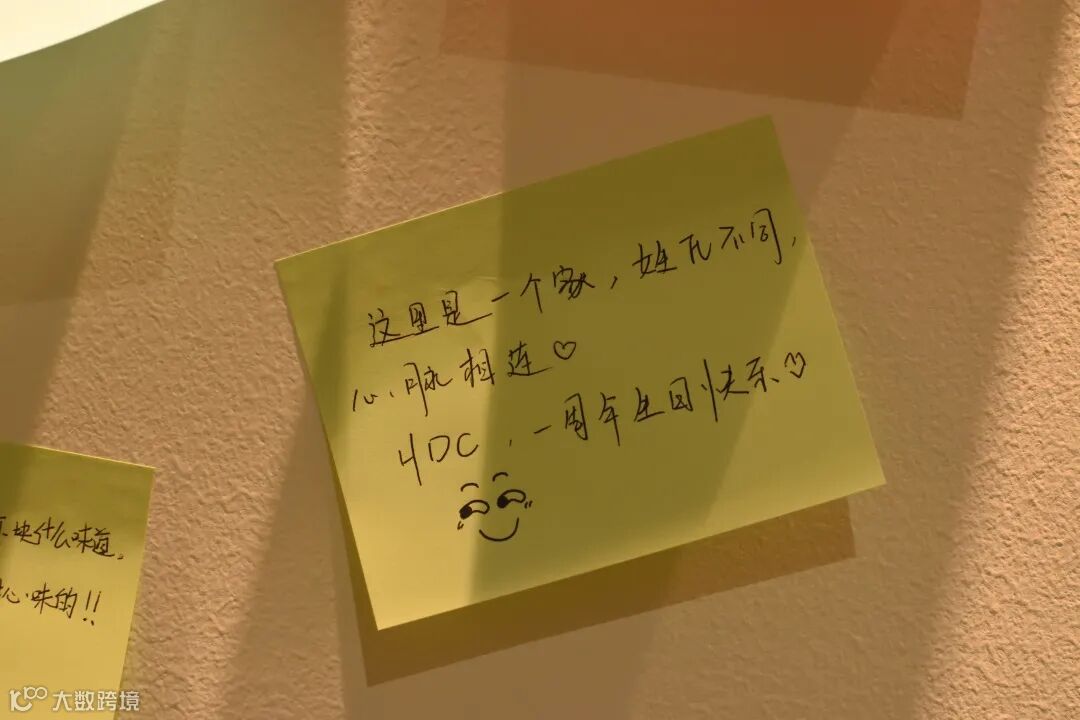 这里是一个家，姓氏不同，
心脉相连♡
4DC，一周年生日快乐♡
块什么味道，
心味的!!
大数跨境